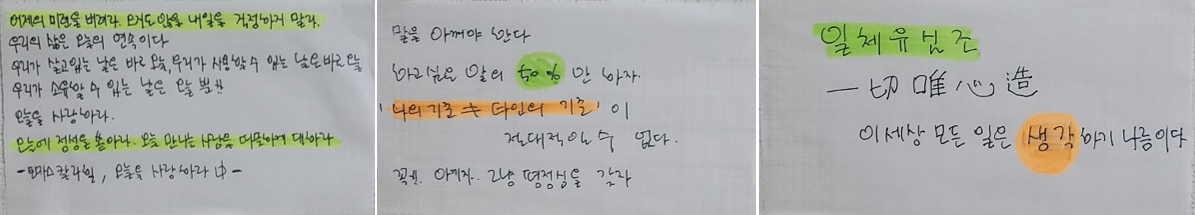 어제의 미련을 버려라. 오지도 않을 내일을 걱정하지 말라.
우리의 삶은 오늘의 연속이다
우리가 살고있는 날은 바로 오늘, 우리가 사용할 수 있는 날은 바로 오늘
우리가 소유할 수 있는 날은 오늘 뿐!!
오늘을 사랑하라.
오늘에 정성을 쏟아라. 오늘 만나는 사람을 따뜻하게 대하라
- 토마스 칼라일, 오늘을 사랑하라 中 -
말을 아껴야 한다
하고싶은 말의 50% 만 하자.
'나의 기준 ≠ 타인의 기준' 이
절대적일 수 없다.
아끼자.. 그냥 평정심을 갖자
일체유심조
一切唯心造
이세상 모든 일은 생각하기 나름이다